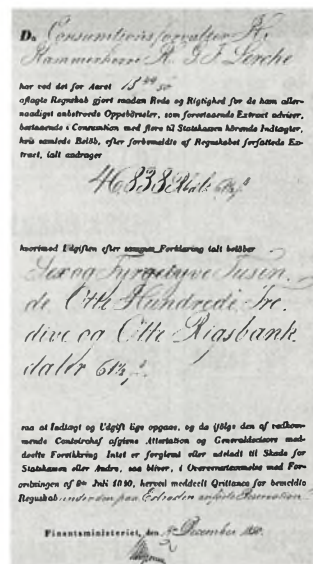 Da Consumtionsforvalter K.
Kammerherre R. G. F. Lerche
har ved det for Aaret 18 49/50
aflagte Regnskab gjort saadan Rede og Rigtighed for de ham aller-
naadigst anbetroede Oppebörsler, som foranstaaende Extract udviser,
bestaaende i Consumtion med flere til Statskassen hörende Indtægter,
hvis samlede Belöb, efter formeldte af Regnskabet forfattede Ex-
tract, ialt andrager
46838 Rbd. 61½ s
hvorimod Udgiften efter samme Forklaring ialt belöber
Sex og Fyrgetyve Tusin,
de, Otte Hundrede Tre
dive og Otte Rigsbank
daler 61½ s
saa at Indtægt og Udgift lige opgaae, og da ifölge den af vedkom-
mende Contoirchef afgivne Attestation og Generaldecisors med-
deelte Forsikkring Intet er forglemt eller udeladt til Skade for
Statskassen eller Andre, saa bliver, i Overeensstemmelse med For-
ordningen af 8de Juli 1840, herved meddeelt Qvittance for bemeldte
Regnskab under den paa Extracten anförte Reservation
Finantsministeriet, den December 1850.